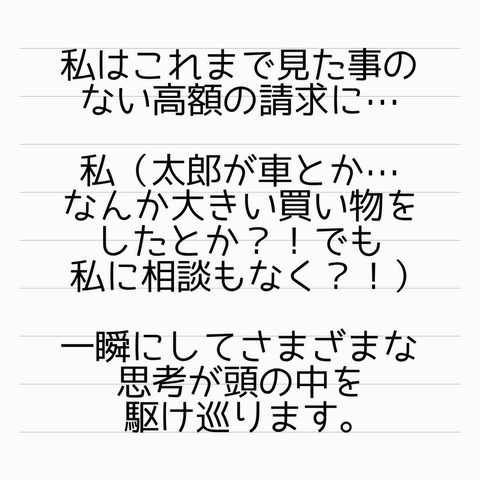 私はこれまで見た事の
ない高額の請求に…
私（太郎が車とか…
なんか大きい買い物を
したとか？！でも
私に相談もなく？！）
一瞬にしてさまざまな
思考が頭の中を
駆け巡ります。